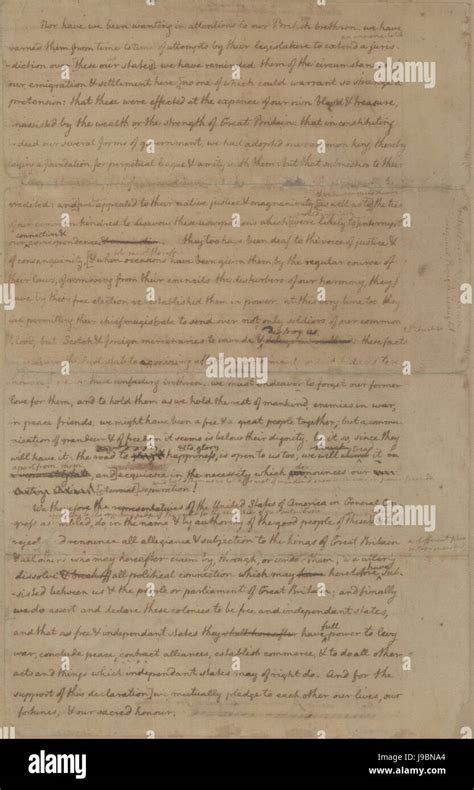 Nor have we been wanting in attentions to our British brethren. we have
warned them from time to time of attempts by their legislature to extend a juris-
-diction over these our states. we have reminded them of the circumstances of
our emigration & settlement here, no one of which could warrant so strange a
pretension: that these were effected at the expence of our own blood & treasure,
unassisted by the wealth or the strength of Great Britain: that in constituting
indeed our several forms of government, we had adopted one common king, thereby
laying a foundation for perpetual league & amity with them: but that submission to their
credited: and we appealed to their native justice & magnanimity as well as to the ties
of our common kindred to disavow these usurpations which were likely to interrupt
connection &
our correspondence. they too have been deaf to the voice of justice &
of consanguinity, & when occasions have been given them, by the regular course of
their laws, of removing from their councils the disturbers of our harmony, they
have by their free election re-established them in power. at this very time too they
are permitting their chief magistrate to send over not only soldiers of our common
destroy us
blood, but Scotch & foreign mercenaries to invade & these facts
have unfeeling brethren. we must endeavor to forget our former
love for them, and to hold them as we hold the rest of mankind, enemies in war,
in peace friends. we might have been a free & a great people together; but a commu-
nication of grandeur & of freedom it seems is below their dignity. be it so, since they
will have it: the road to happiness is open to us too; we will it in
and acquiesce in the necessity which denounces our
eternal separation!
We therefore the representatives of the United States of America in General Con-
gress assembled, do in the name & by authority of the good people of these states
reject & renounce all allegiance & subjection to the kings of Great Britain
& all others who may hereafter claim by, through, or under them; we utterly
dissolve & break off all political connection which may have heretofore sub-
-sisted between us & the people or parliament of Great Britain; and finally
we do assert and declare these colonies to be free and independant states,
full
and that as free & independant states they shall hereafter have power to levy
war, conclude peace, contract alliances, establish commerce, & to do all other
acts and things which independant states may of right do. And for the
support of this declaration we mutually pledge to each other our lives, our
fortunes, & our sacred honour.
alamy
Image ID: J9BNA4
www.alamy.com